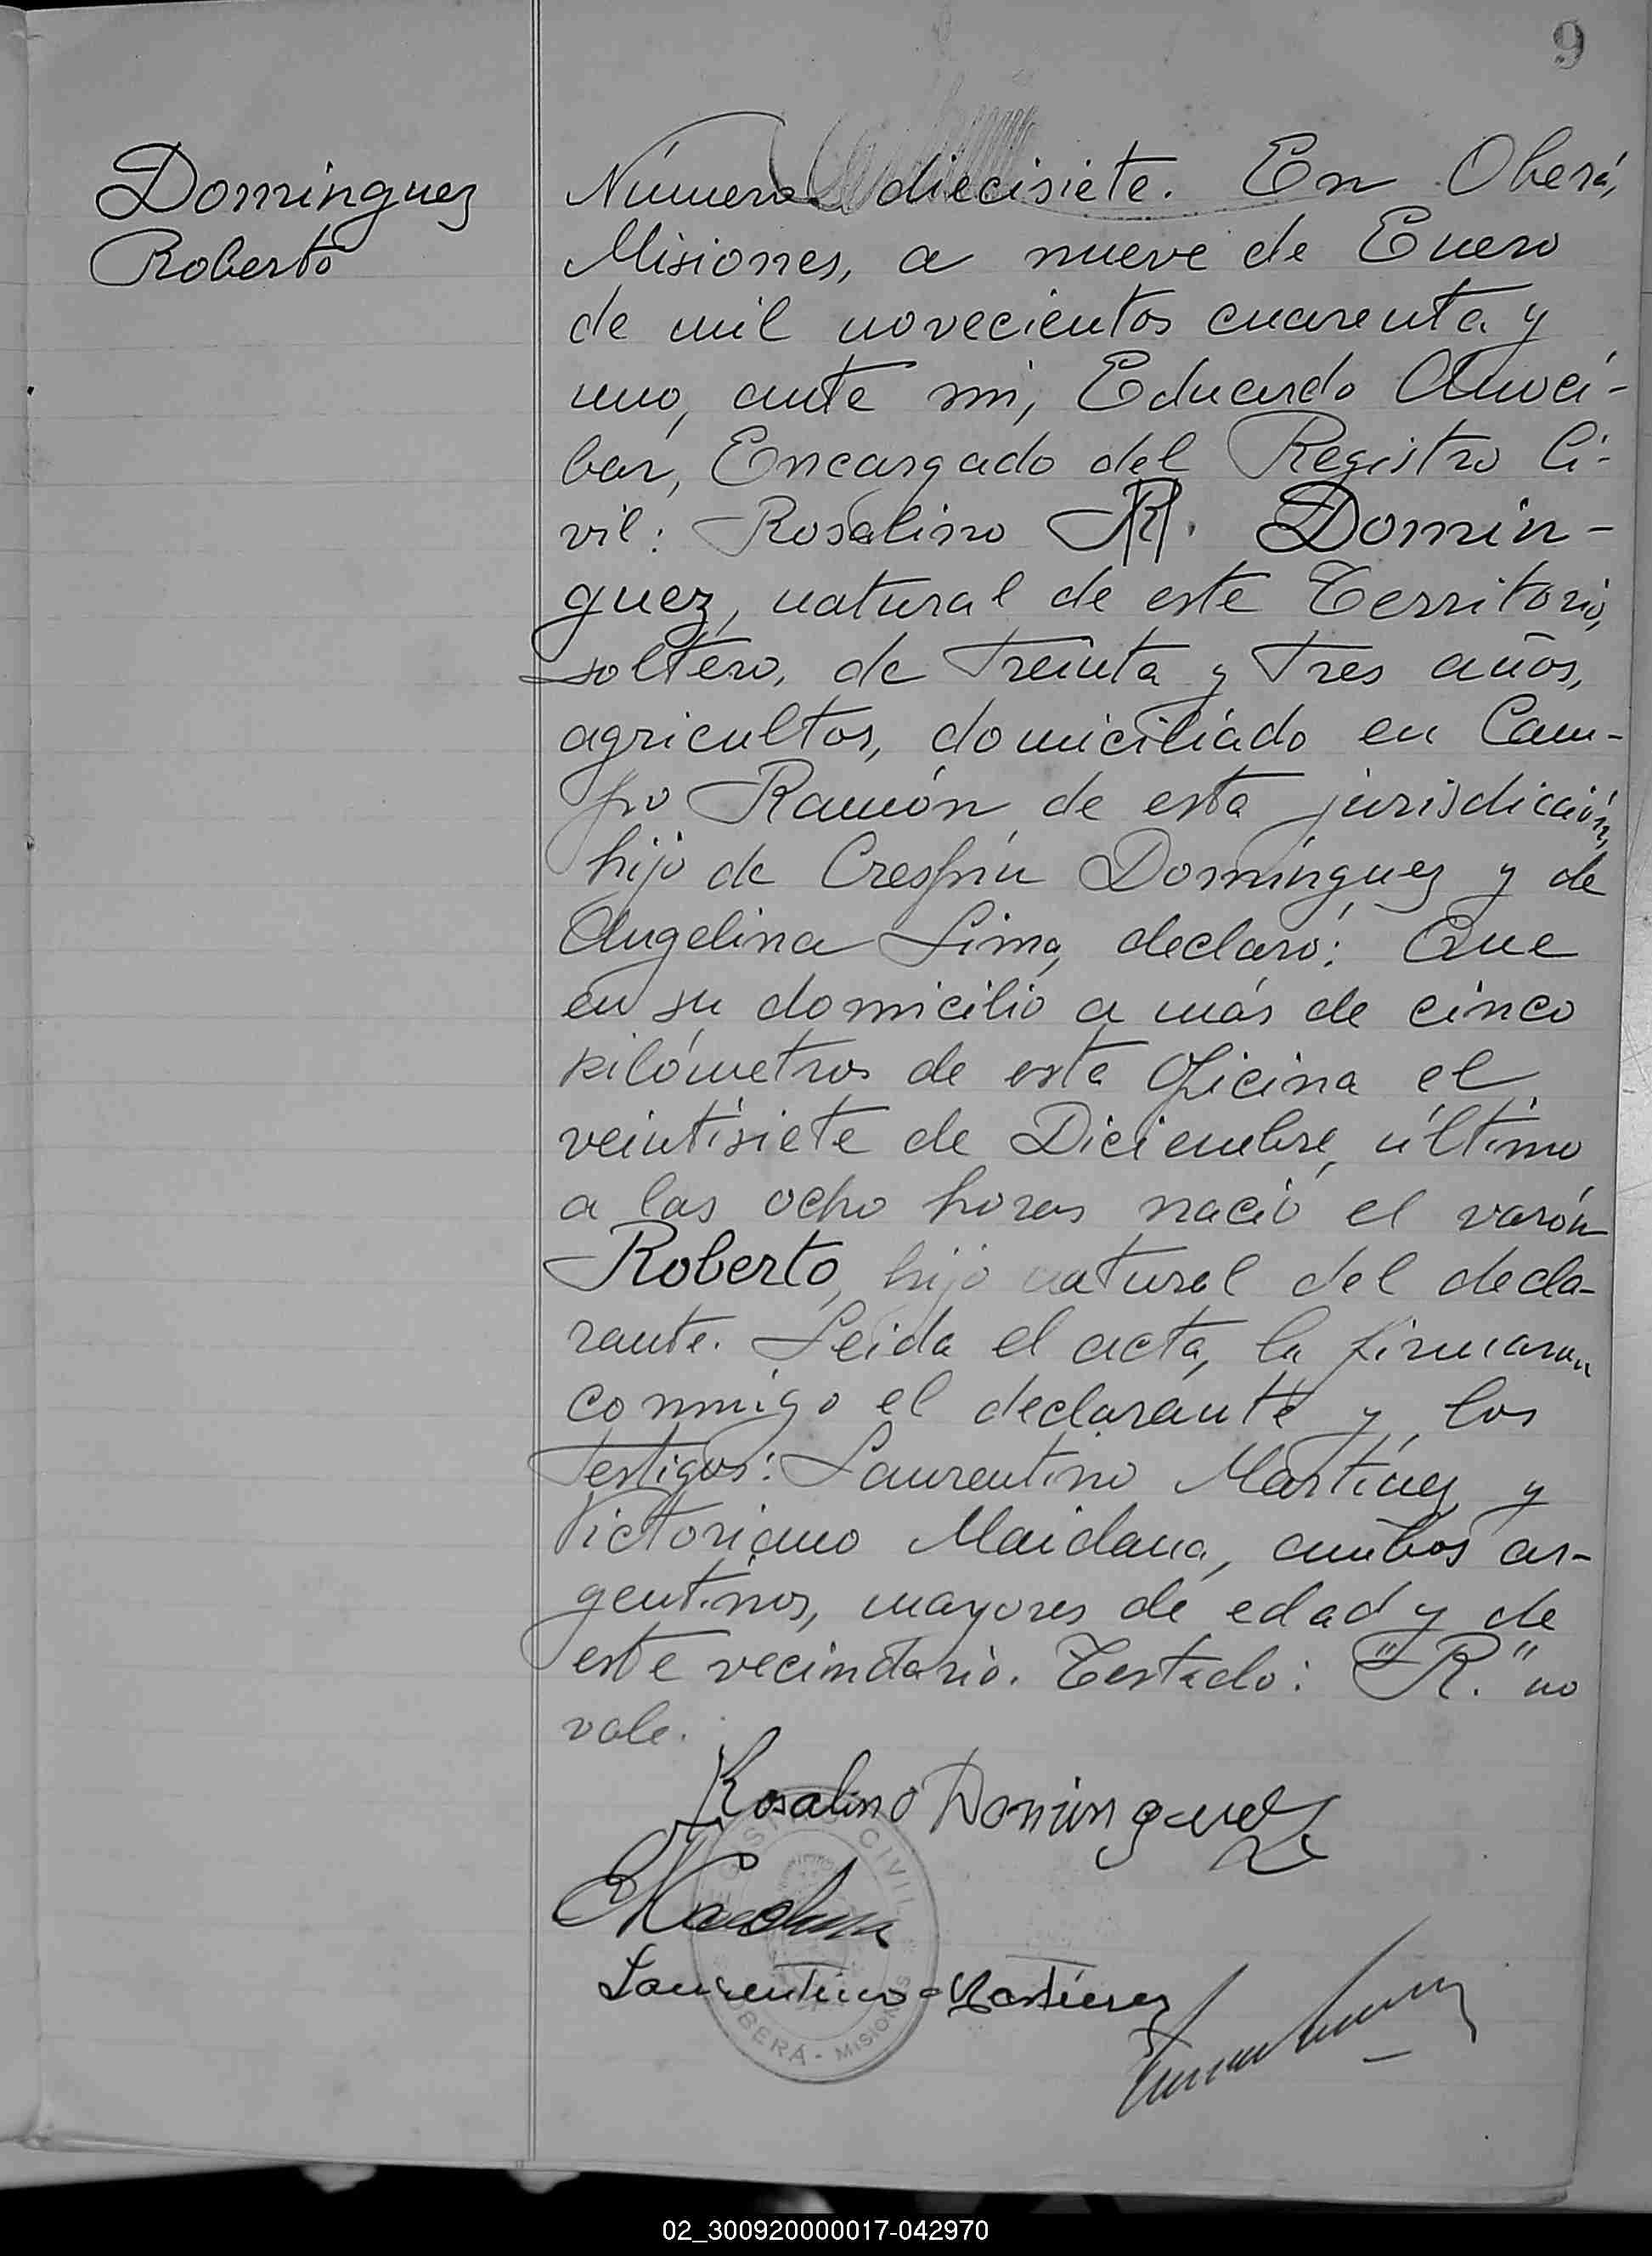 9
Dominguez
Roberto
Número diecisiete. En Oberá,
Misiones, a nueve de Enero
de mil novecientos cuarenta y
uno, ante mi, Eduardo Amoci-
bar, Encargado del Registro Ci-
vil: Rosalino R. Domin-
guez, natural de este Territorio,
soltero, de treinta y tres años,
agricultor, domiciliado en Cam-
po Ramón de esta jurisdicción,
hijo de Crespín Domínguez y de
Angelina Lima, declaró: Que
en su domicilio a más de cinco
kilómetros de esta Oficina el
veintisiete de Diciembre, último
a las ocho horas nació el varón
Roberto, hijo natural del decla-
rante. Leida el acta, la firmaron
conmigo el declarante y los
testigos: Laurentino Martínez y
Victoriano Maidana, ambos ar-
gentinos, mayores de edad y de
este vecindario. Testado: "R." no
vale.
Rosalino Dominguez
REGISTRO CIVIL
Laurentino Martínez
OBERÁ - MISIONES
02_300920000017-042970